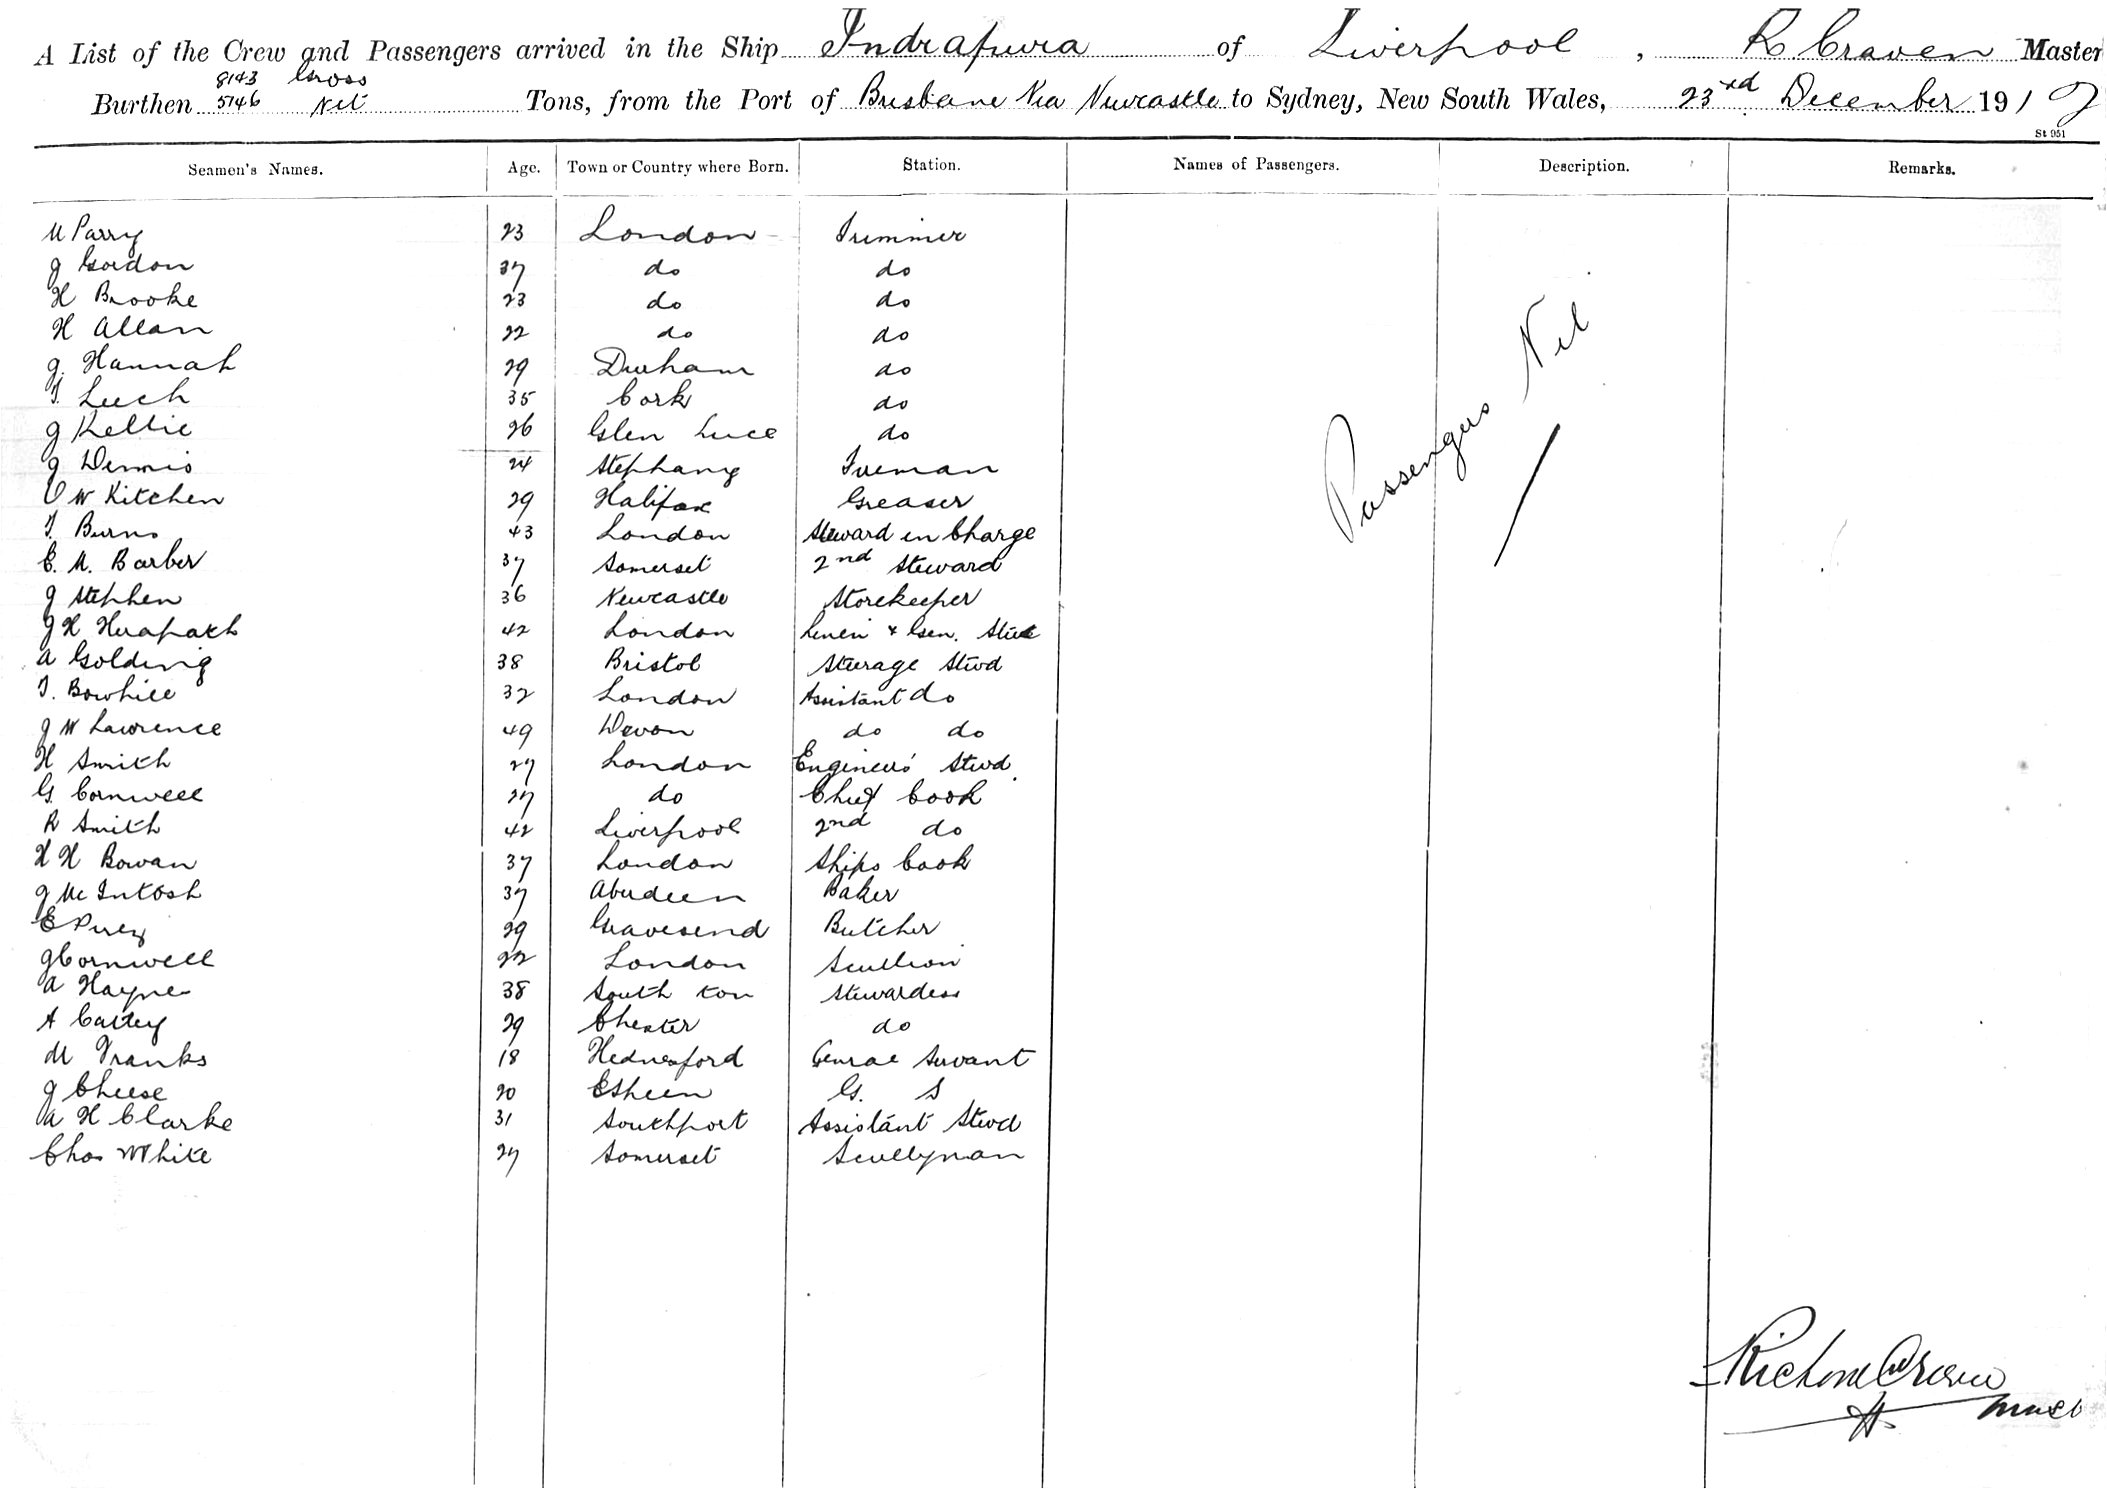 A List of the Crew and Passengers arrived in the Ship Indrapura of Liverpool, R Craven Master
8143 Gross
Burthen 5146 Net Tons, from the Port of Brisbane Via Newcastle to Sydney, New South Wales, 23rd December 191
St 951
Seamen's Names. Age. Town or Country where Born. Station. Names of Passengers. Description. Remarks.
M Parry 23 London Trimmer
J Gordon 37 do do
H Brooke 23 do do
H Allan 22 do do
J. Hannah 29 Durham do
T. Leech 35 Cork do
J Kellie 26 Glen Luce do
J Dennis 24 Fireman
W Kitchen 29 Halifax Greaser
T. Burns 43 London Steward in Charge
E. M. Barber 37 Somerset 2nd Steward
J Stephen 36 Newcastle Storekeeper
J H Herapath 42 London Linen & Gen.
A Golding 38 Bristol Steerage Stwd
T. Bowhill 32 London Assistant do
J W Lawrence 49 Devon do do
H Smith 27 London Engineers' Stwd.
G. Cornwell 27 do Chief Cook
R Smith 42 Liverpool 2nd do
H H Bowan 37 London Ships Cook
J McIntosh 37 Aberdeen Baker
E 29 Gravesend Butcher
J Cornwell 22 London Scullion
A Hayne 38 South ton Stewardess
A 29 Chester do
M Franks 18 Hednesford Genral Servant
J Cheese 20 G. S
A H Clarke 31 Southport Assistant Stwd
Chas White 27 Somerset Scullyman
Passengers Nil
Richard Craven